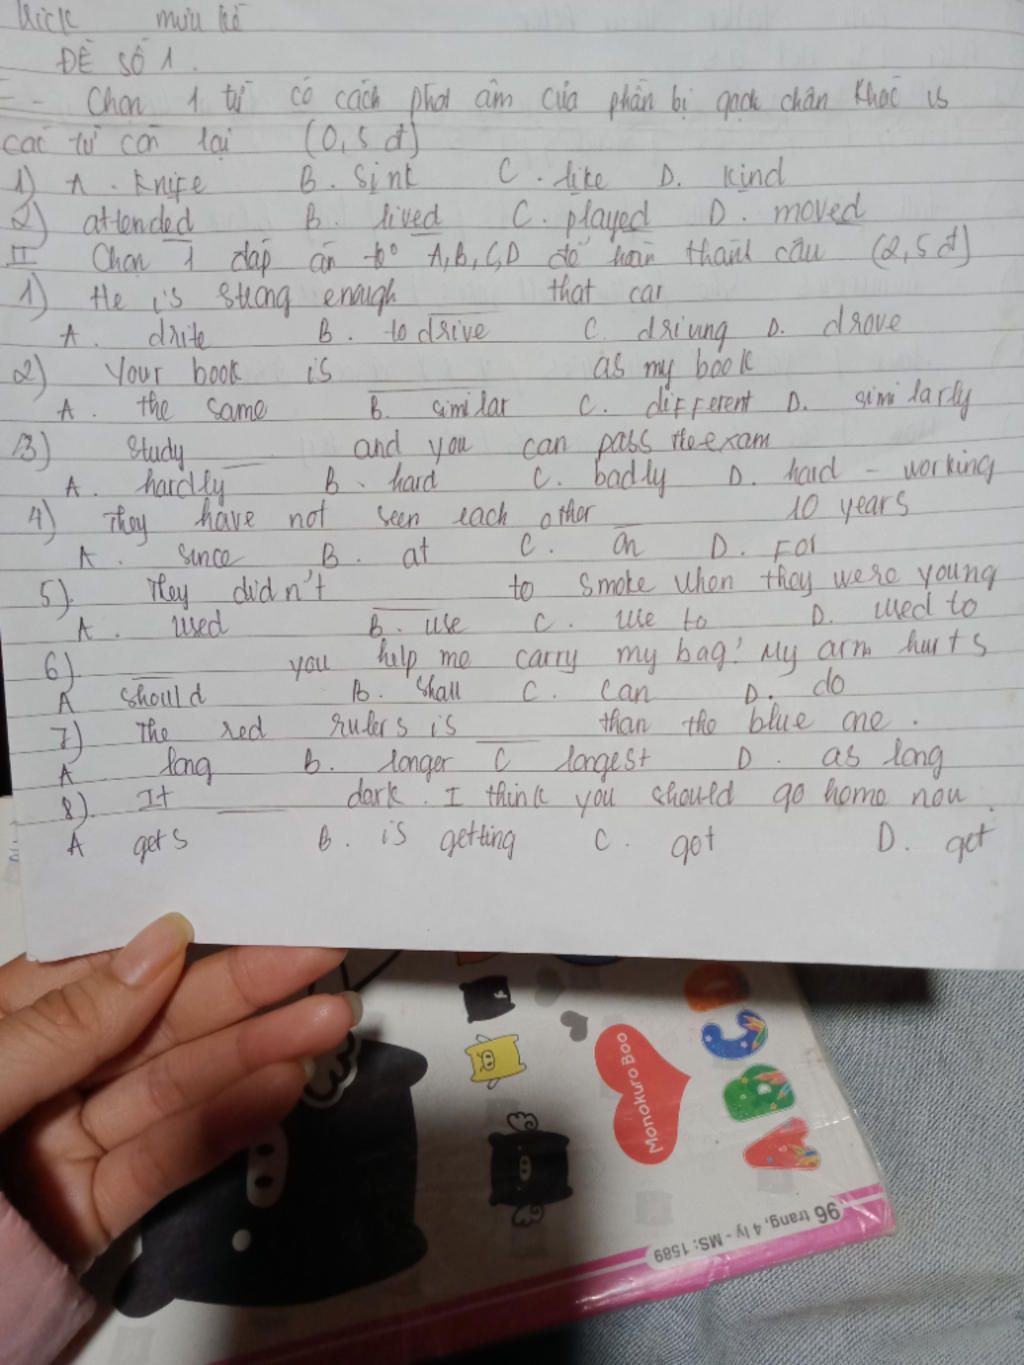 mưu kế
ĐỀ SỐ 1.
- Chọn 1 từ có cách phát âm của phần bị gạch chân khác
các từ còn lại (0,5 đ)
1) A. Knife B. Sink C. like D. kind
2) attended B. lived C. played D. moved
II Chọn 1 đáp án từ A, B, C, D để hoàn thành câu (2,5 đ)
1) He is strong enough that car
A. drite B. to drive C. driving D. drove
2) Your book is as my book
A. the same B. similar C. different D. similarly
3) Study and you can pass the exam
A. hardly B. hard C. badly D. hard - working
4) They have not seen each other 10 years
A. since B. at C. on D. For
5) They didn't to smoke when they were young
A. used B. use C. use to D. used to
6) you help me carry my bag? My arm hurts
A should B. shall C. can D. do
7) The red rulers is than the blue one.
A long B. longer C longest D. as long
8). It dark. I think you should go home now.
A gets B. is getting C. got D. get
Monokuro Boo
A B C D
96 trang, 4 ly - MS: 1589